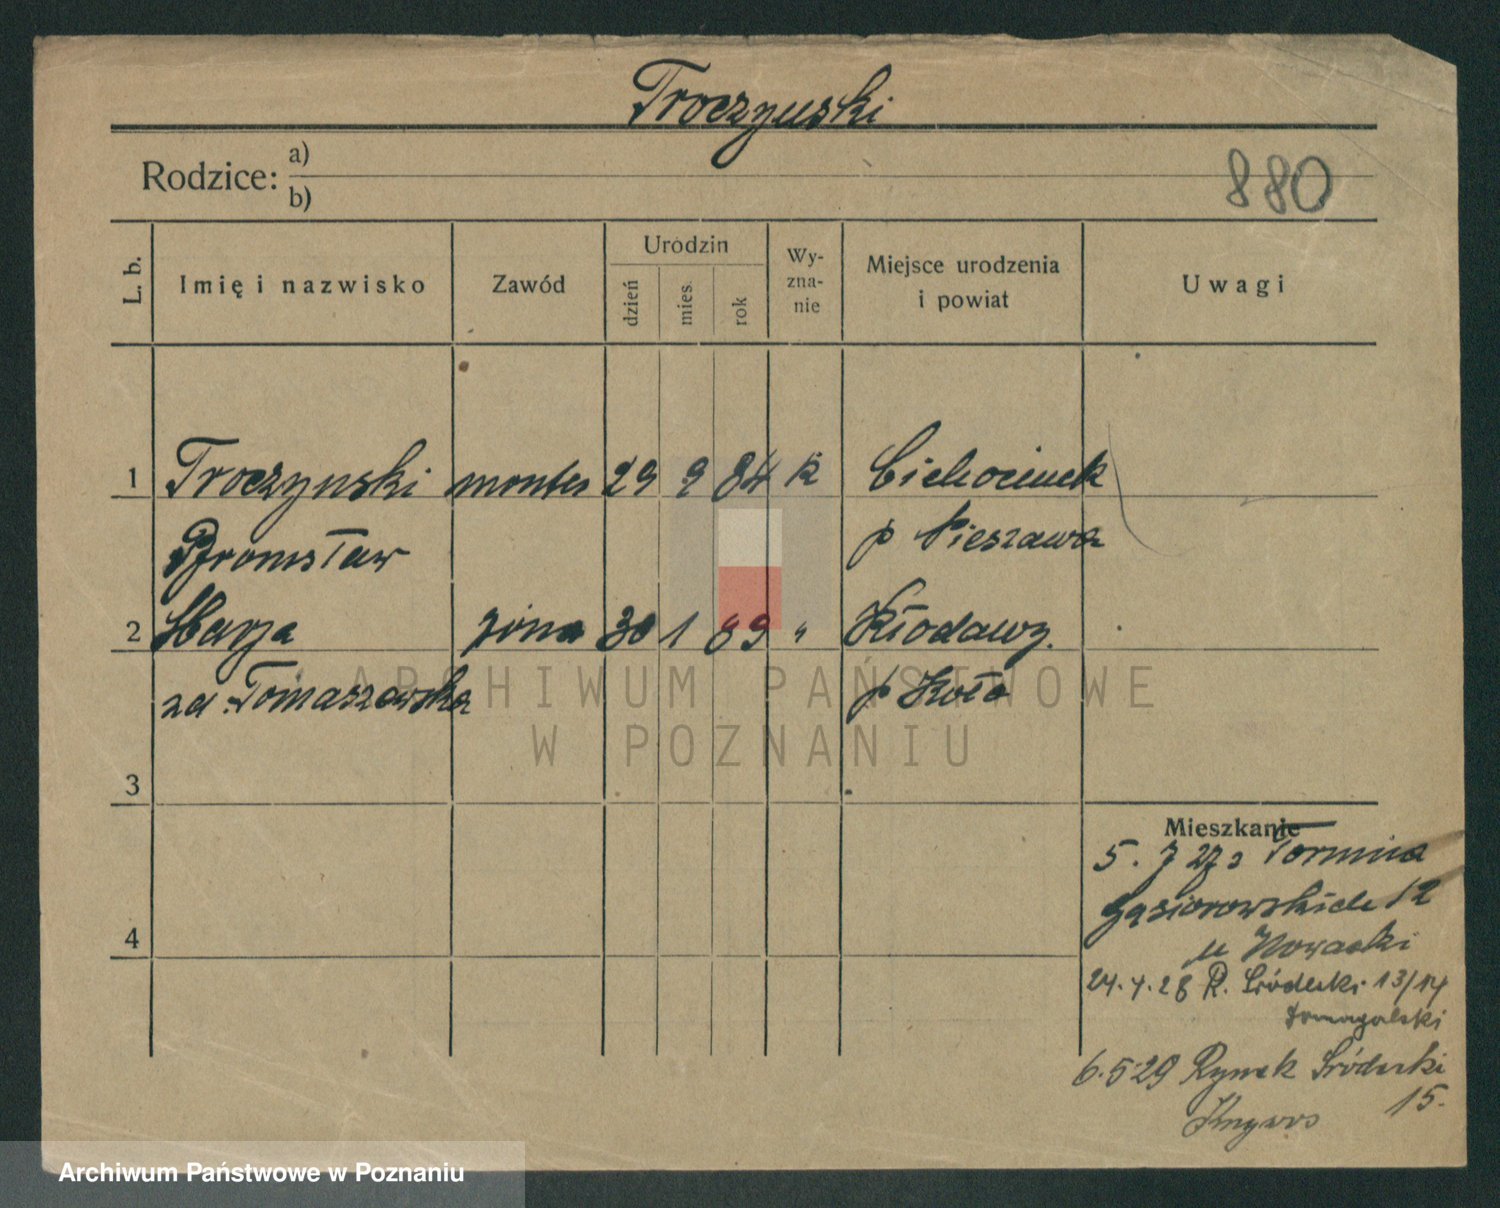 Troczynski
Rodzice: a)
b)
880
L. b.
Imię i nazwisko
Zawód
Urodzin
dzień
mies.
rok
Wy-
zna-
nie
Miejsce urodzenia
i powiat
Uwagi
1 Troczynski monter 29 9 84 k Ciechocinek
Bronisław p Nieszawa
2 Marja żona 30 1 89 " Kłodawy.
zd. Tomaszewska p Koło
ARCHIWUM PAŃSTWOWE
W POZNANIU
3
4
Mieszkanie
5. 7 27 z Torunia
Gąsiorowskich 12
u Nowacki
24. 4. 28 R. Śródecki 13/14
Domagalski
6.5.29 Rynek Śródecki
15.
Archiwum Państwowe w Poznaniu